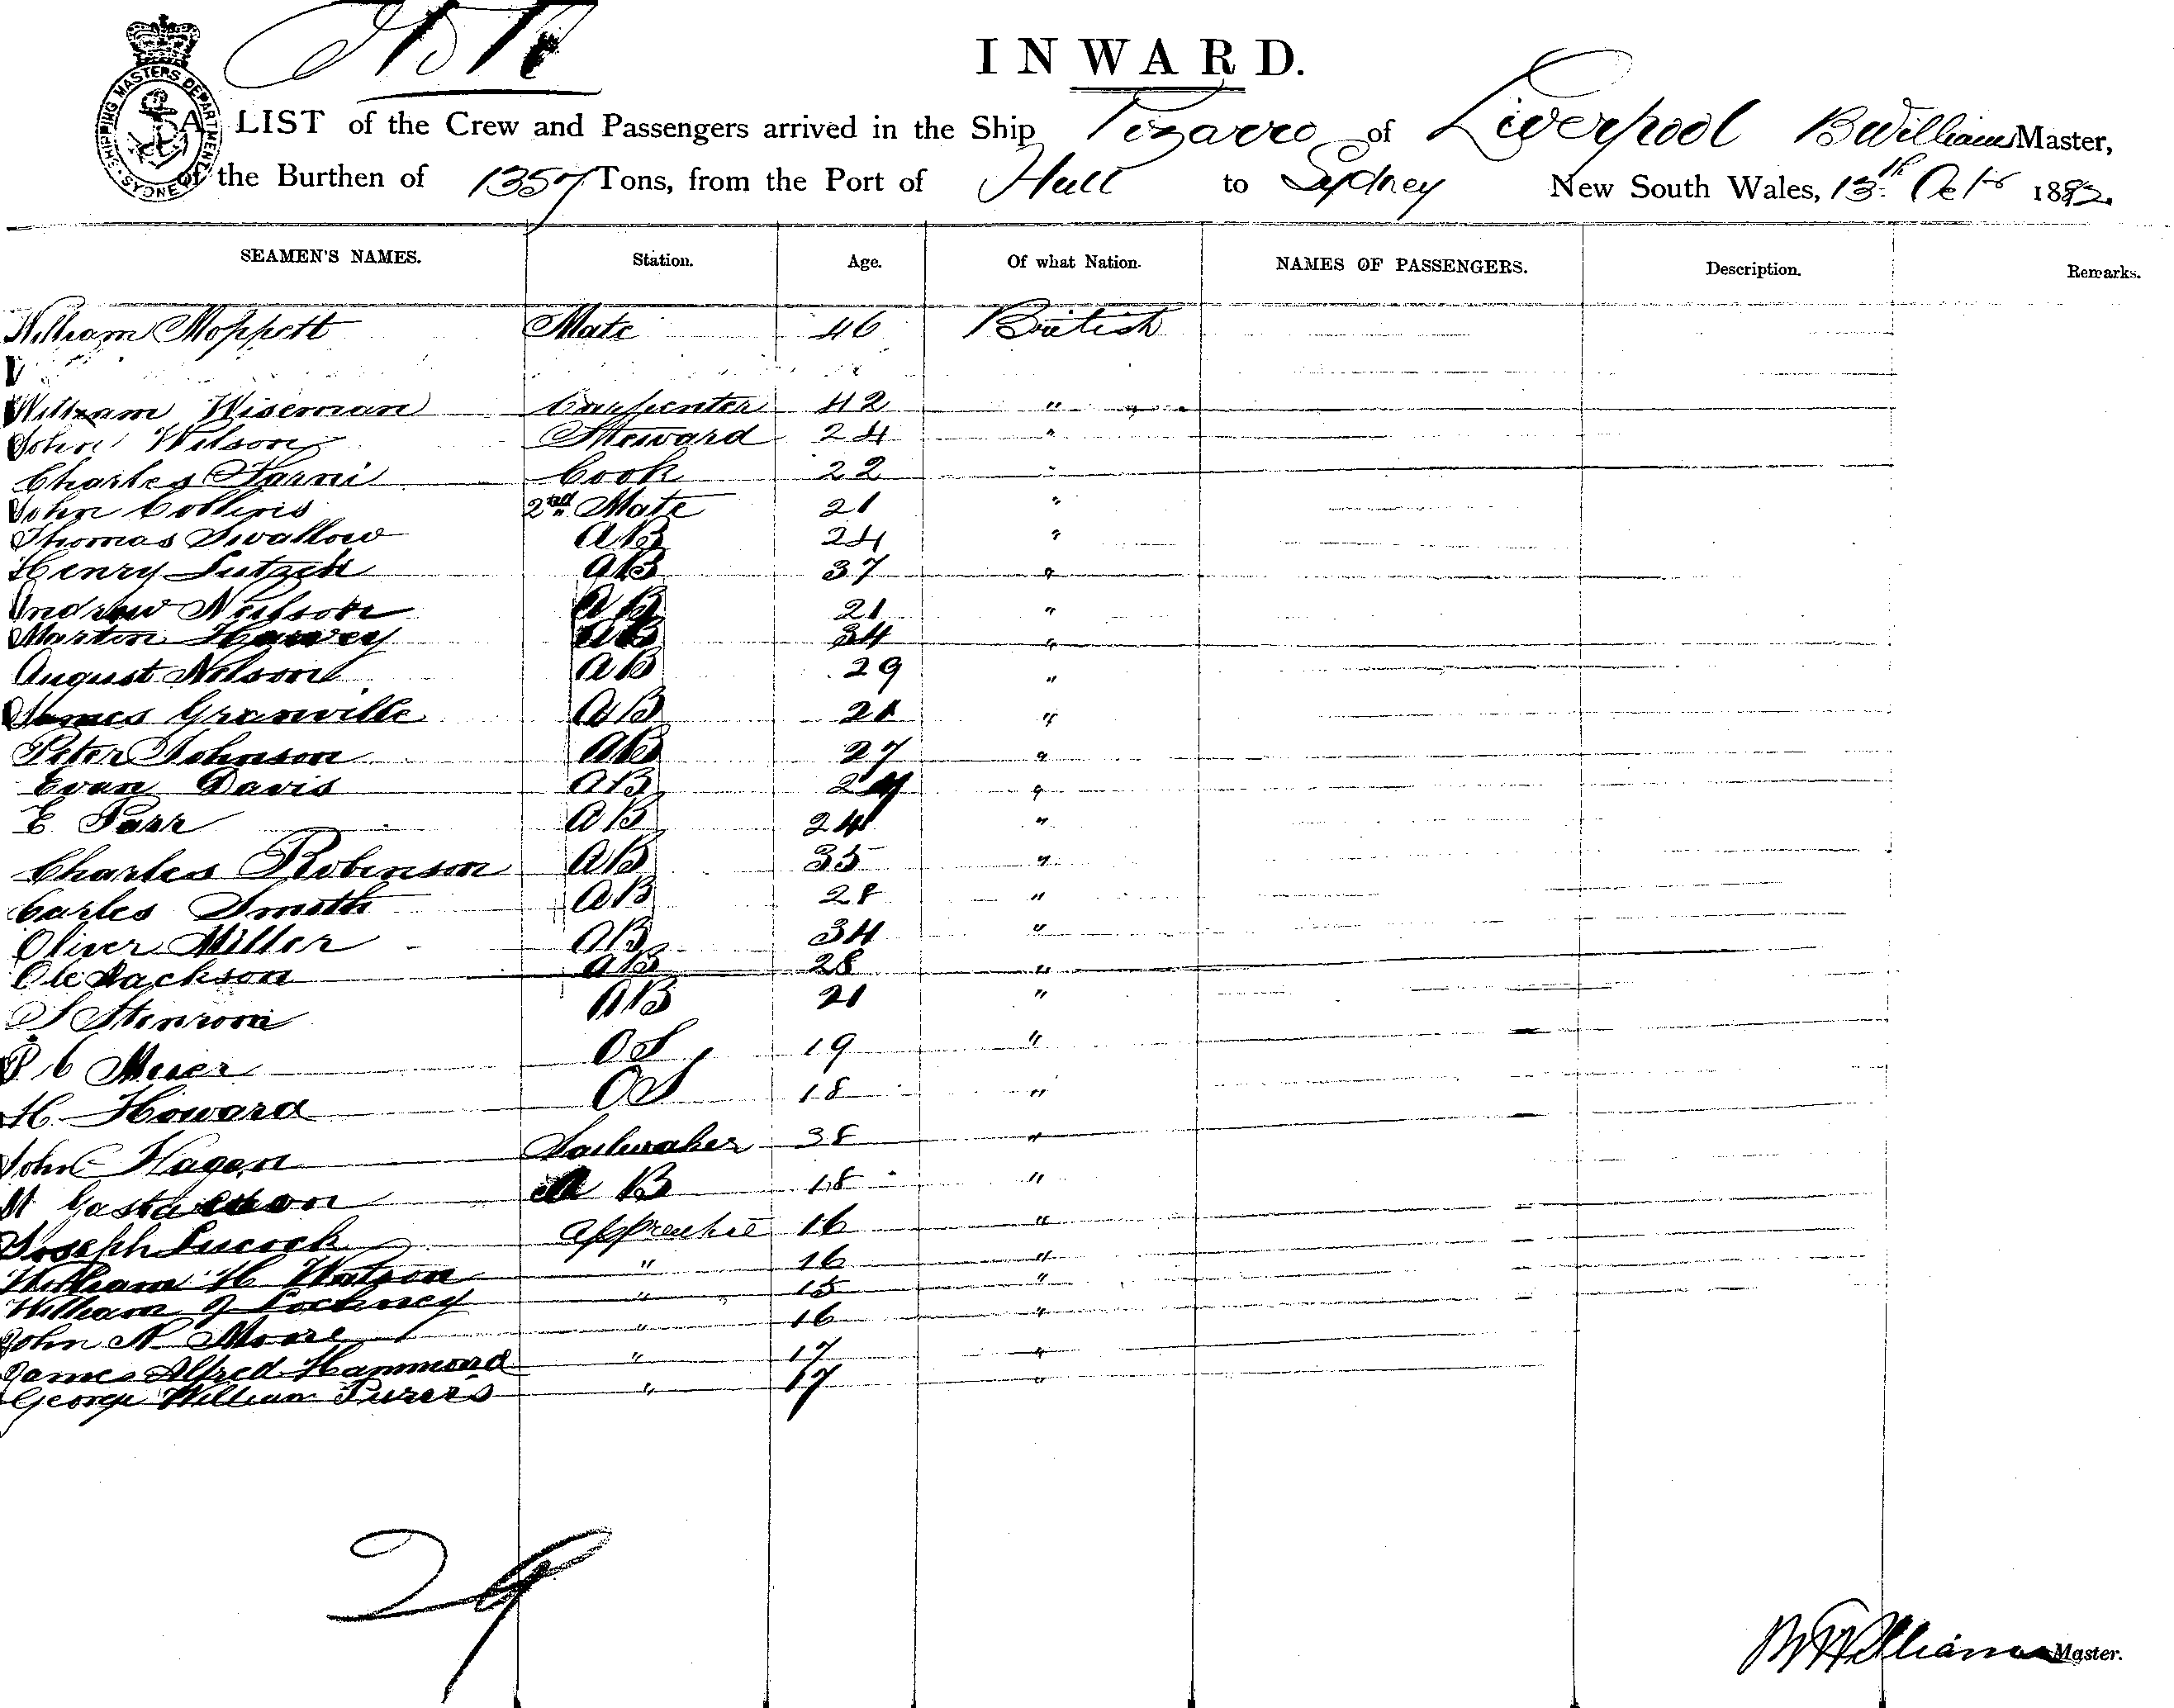 INWARD.
SHIPPING MASTERS DEPARTMENT SYDNEY
A LIST of the Crew and Passengers arrived in the Ship Pizarro of Liverpool B Williams Master,
of the Burthen of 1357 Tons, from the Port of Hull to Sydney New South Wales, 13th Octr 1882
SEAMEN'S NAMES. Station. Age. Of what Nation. NAMES OF PASSENGERS. Description. Remarks.
William Moppett Mate 46 British
William Wiseman Carpenter 42 "
John Wilson Steward 24 "
Charles Cook 22 "
John Collins 2nd Mate 21 "
Thomas Swallow AB 24 "
Henry AB 37 "
Andrew Neilson AB 21 "
Martin Harvey AB 34 "
August Nelson AB 29 "
James Granville AB 21 "
Peter Johnson AB 27 "
Evan Davis AB "
E Parr AB 24 "
Charles Robinson AB 35 "
Carles Smith AB 28 "
Oliver Miller AB 34 "
Ole Jackson AB 28 "
S AB 21 "
P C Meier OS 19 "
H Howard OS 18 "
John Hagen Sailmaker 38 "
AB 18 "
Joseph Lucock apprentice 16 "
William H Watson " 16 "
William J Lockney " 15 "
John N Moore " 16 "
James Alfred Hammond " 17 "
George William " 17 "
29
B Williams Master.